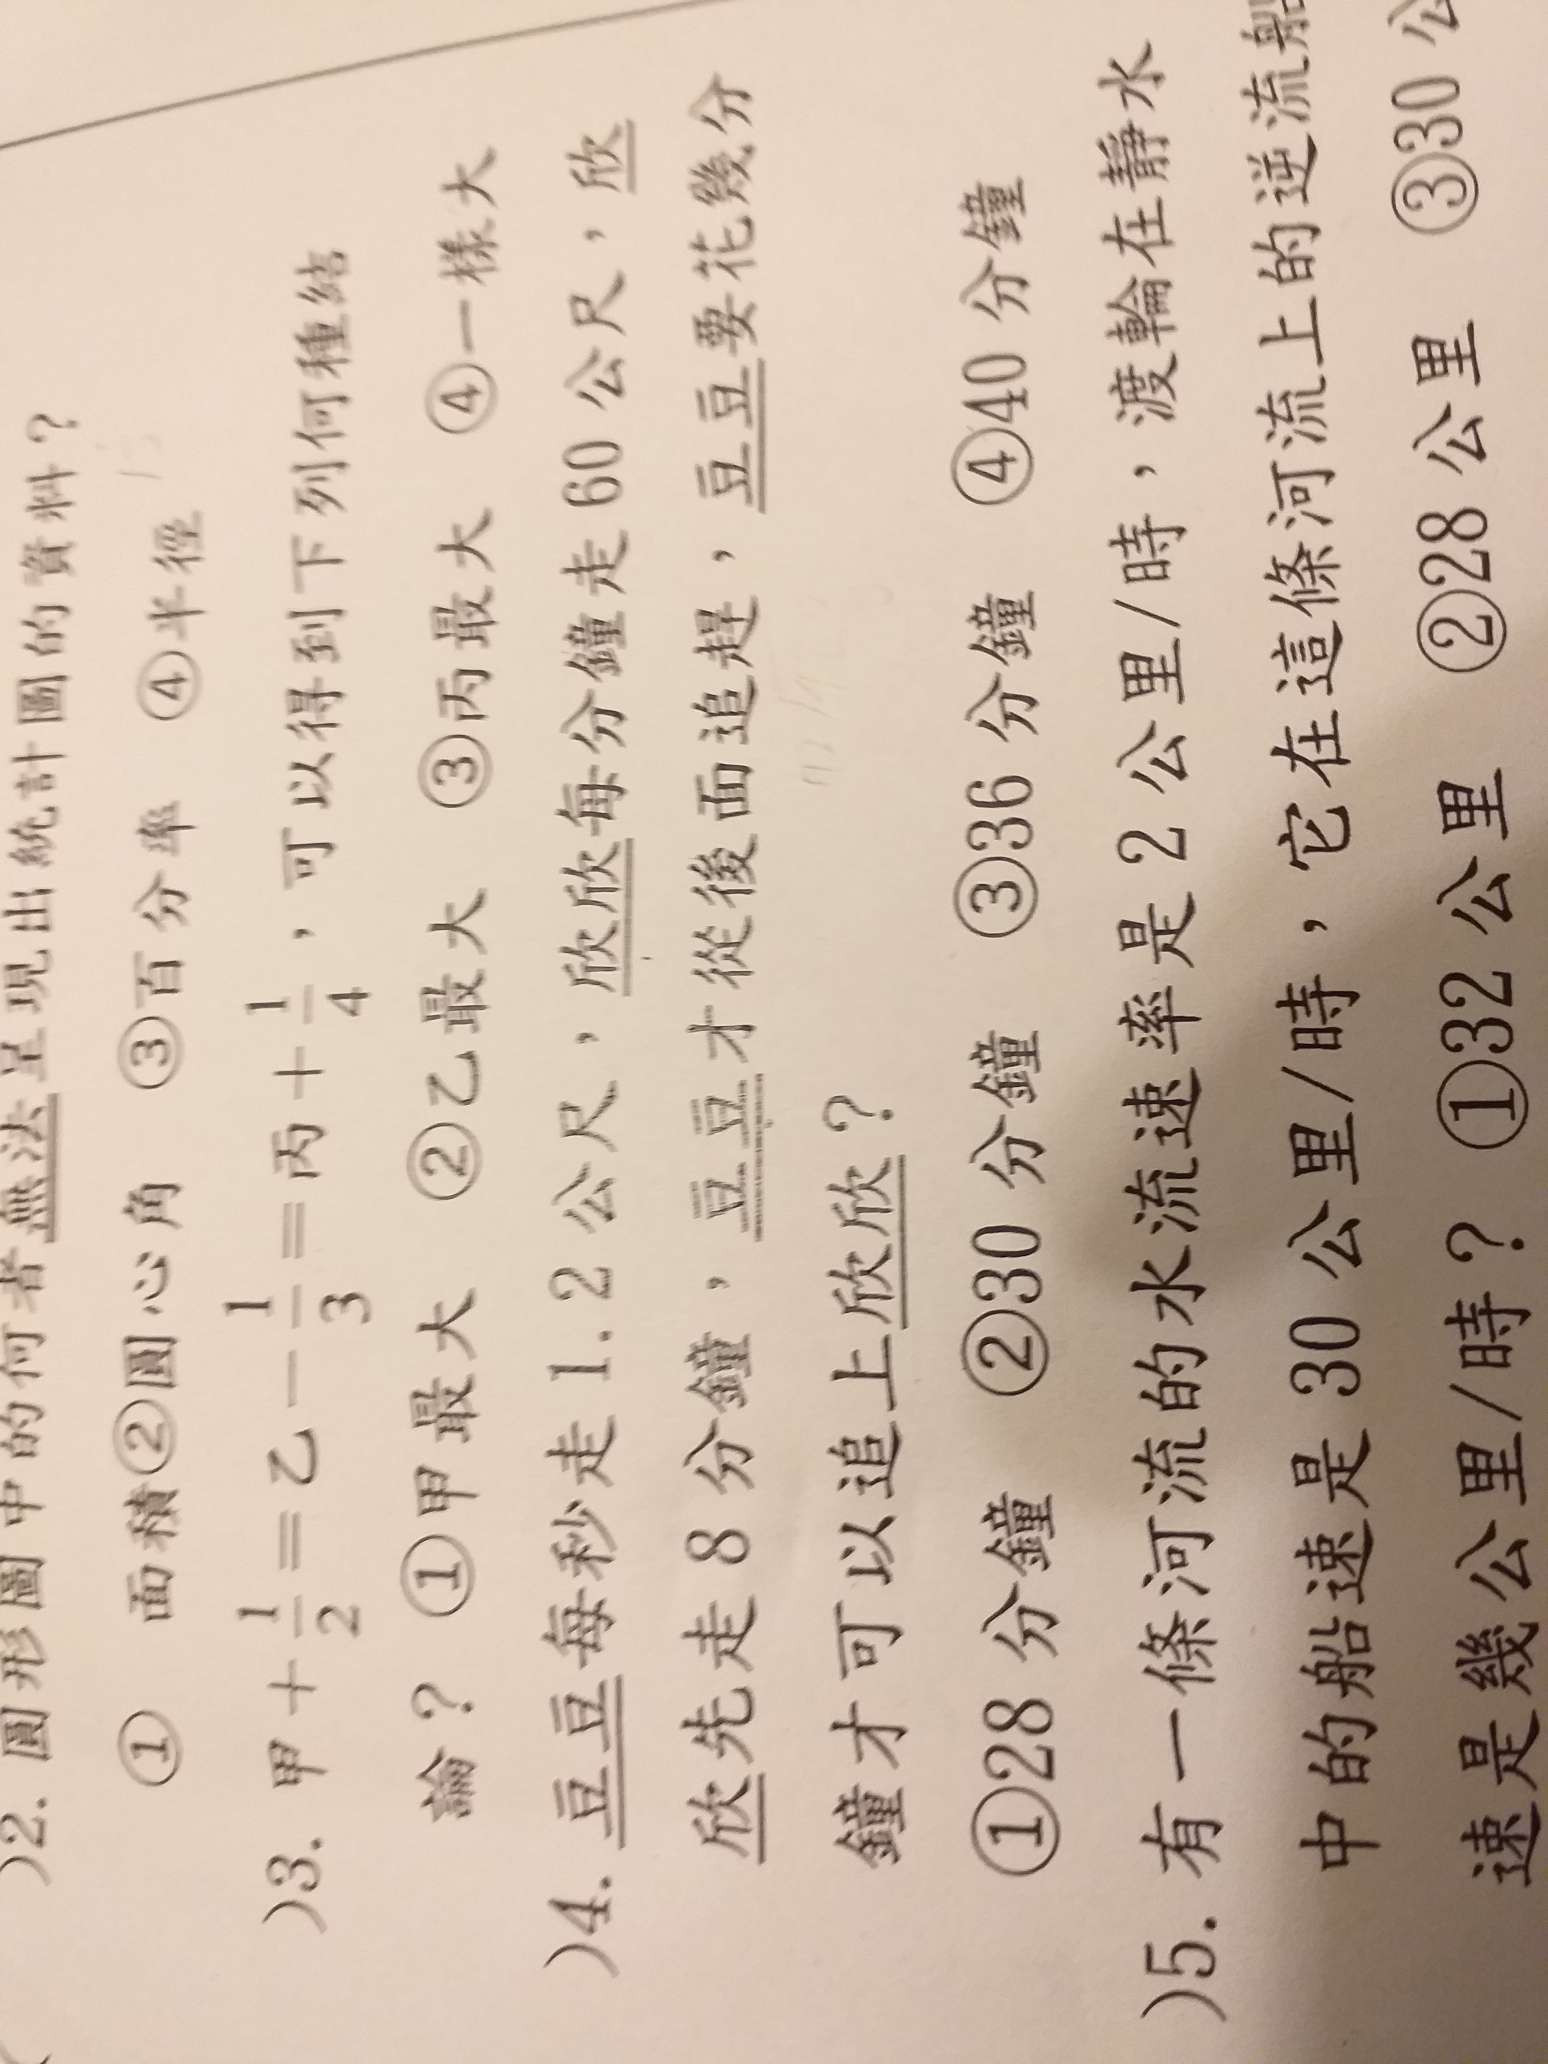 )2. 圓形圖中的何者無法呈現出統計圖的資料？
① 面積②圓心角 ③百分率 ④半徑
)3. 甲＋1/2＝乙－1/3＝丙＋1/4，可以得到下列何種結
論？ ①甲最大 ②乙最大 ③丙最大 ④一樣大
)4. 豆豆每秒走 1.2 公尺，欣欣每分鐘走 60 公尺，欣
欣先走 8 分鐘，豆豆才從後面追趕，豆豆要花幾分
鐘才可以追上欣欣？
①28 分鐘 ②30 分鐘 ③36 分鐘 ④40 分鐘
)5. 有一條河流的水流速率是 2 公里/時，渡輪在靜水
中的船速是 30 公里/時，它在這條河流上的逆流船
速是幾公里/時？ ①32 公里 ②28 公里 ③30 公